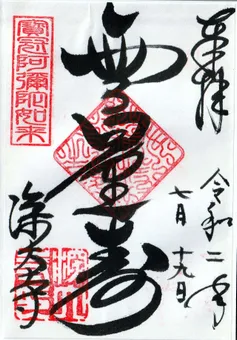 奉拝
令和二年
七月十九日
無量寿
寳冠阿彌陀如来
深大寺